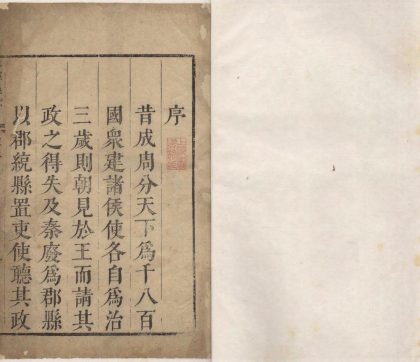 序
昔成周分天下爲千八百
國衆建諸侯使各自爲治
三歲則朝見於王而請其
政之得失及秦廢爲郡縣
以郡統縣置吏使聽其政